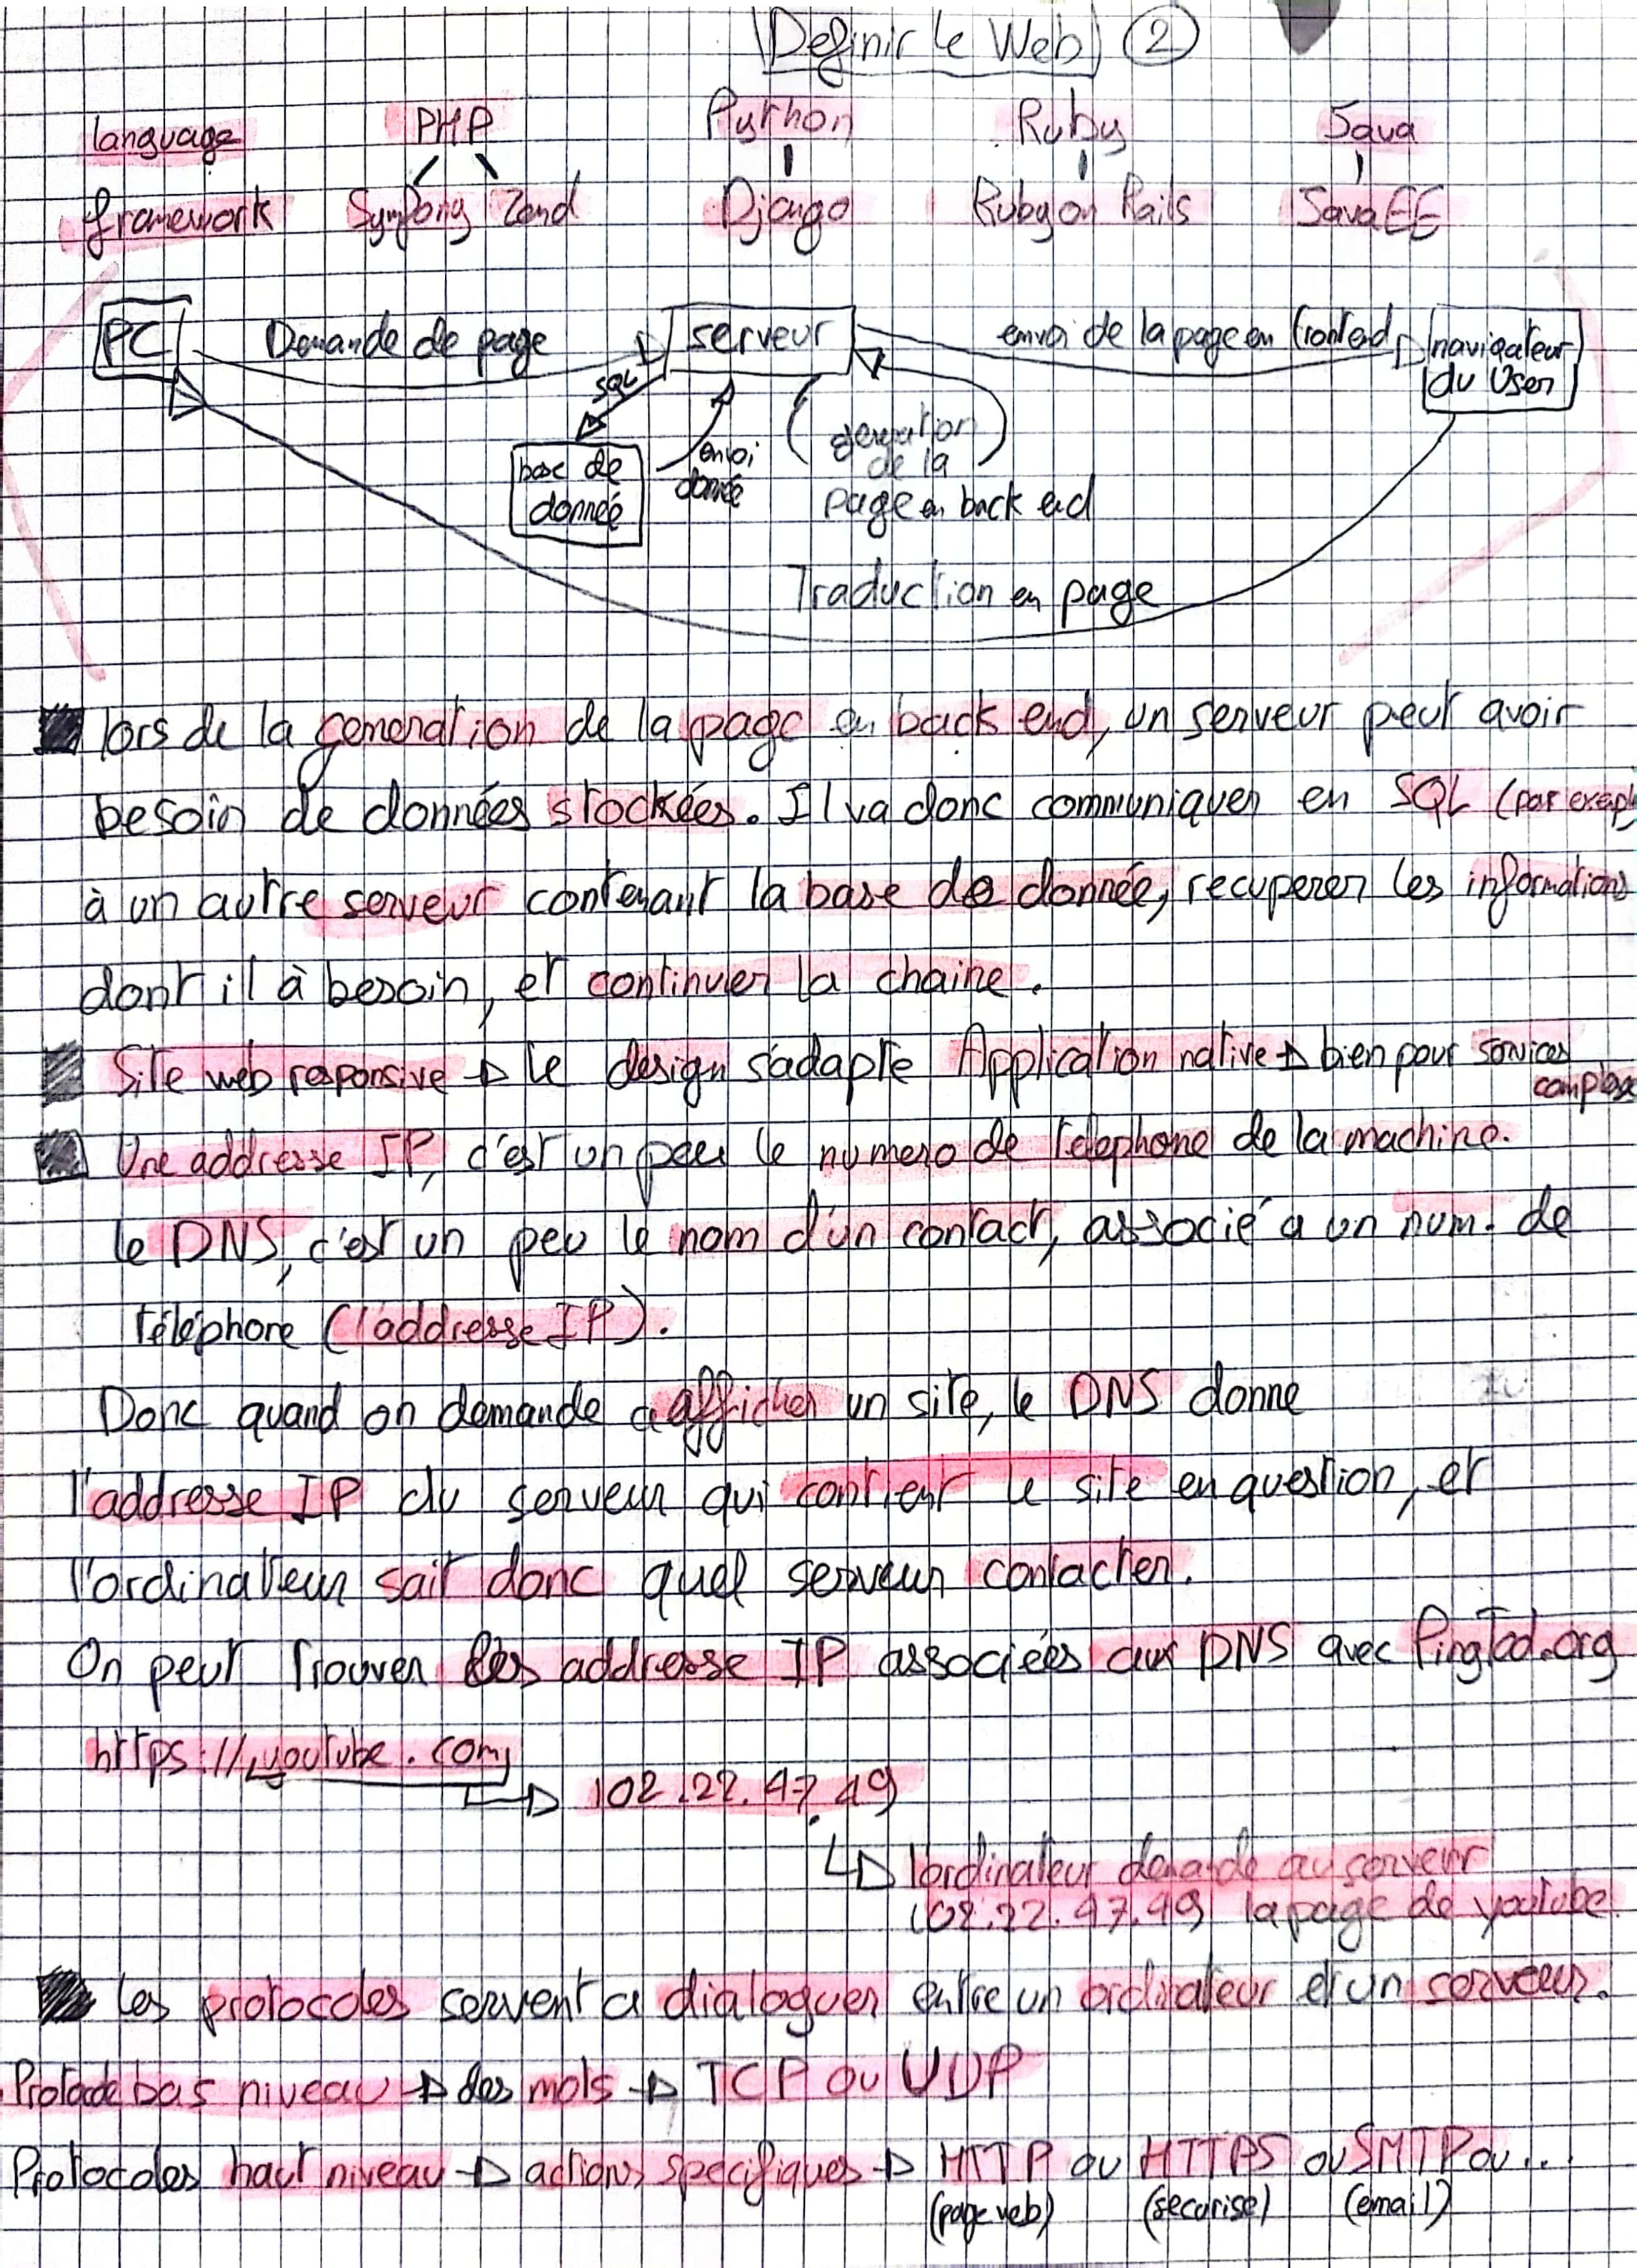 Definir le Web 2
language PHP Python Ruby Java
framework Symfony Zend Django Ruby on Rails Java EE
PC Demande de page serveur envoi de la page en frontend navigateur
du User
SQL
base de
donnée
envoi
donnée
generation
de la
page en back end
Traduction en page
lors de la generation de la page en back end, un serveur peut avoir
besoin de données stockées. Il va donc communiquer en SQL (par exempl
à un autre serveur contenant la base de donnée, recuperer les informations
dont il à besoin, et continuer la chaine.
Site web responsive → le design s'adapte Application native → bien pour services
complexe
Une addresse IP, c'est un peu le numero de telephone de la machine.
le DNS, c'est un peu le nom d'un contact, associé a un num. de
téléphone (l'addresse IP).
Donc quand on demande a afficher un site, le DNS donne
l'addresse IP du serveur qui contient le site en question, et
l'ordinateur sait donc quel serveur contacter.
On peut trouver les addresse IP associées aux DNS avec PingTool.org
https://youtube.com
→ 102.22.47.49
→ l'ordinateur demande au serveur
102.22.47.49 la page de youtube.
Les protocoles servent a dialoguer entre un ordinateur et un serveur.
bas niveau → des mots → TCP ou UDP
Protocoles haut niveau → actions specifiques → HTTP ou HTTPS ou SMTP ou...
(page web) (securise) (email)